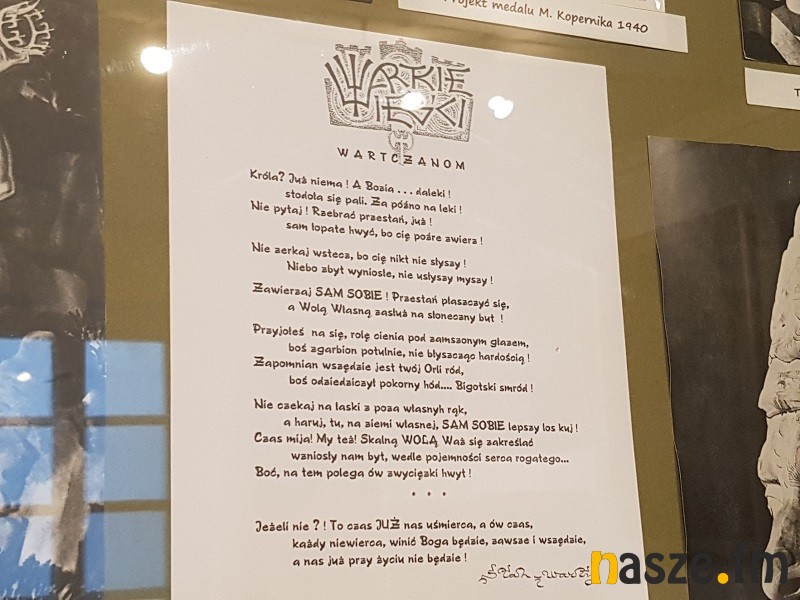 Projekt medalu M. Kopernika 1940
WARKIE
WIEŚCI
WARTCZANOM
Króla? Już niema! A Bozia ... daleki!
stodoła się pali. Za późno na leki!
Nie pytaj! Rzebrać przestań, już!
sam łopate hwyć, bo cię pożre zwierz!
Nie zerkaj wstecz, bo cię nikt nie słyszy!
Niebo zbyt wyniosłe, nie usłyszy myszy!
Zawierzaj SAM SOBIE! Przestań płaszczyć się,
a Wolą Własną zasłuż na słoneczny but !
Przyjołeś na się, rolę cienia pod zamszonym głazem,
boś zgarbion potulnie, nie błyszcząc hardością!
Zapomnian wszędzie jest twój Orli ród,
boś odziedziczył pokorny hód.... Bigotski smród!
Nie czekaj na łaski z poza własnyh rąk,
a haruj, tu, na ziemi własnej, SAM SOBIE lepszy los kuj!
Czas mija! My też! Skalną WOLĄ Waż się zakreślać
wzniosły nam byt, wedle pojemności serca rogatego...
Boć, na tem polega ów zwycięzki hwyt!
• • •
Jeżeli nie?! To czas JUŻ nas uśmierca, a ów czas,
każdy niewierca, winić Boga będzie, zawsze i wszędzie,
a nas już przy życiu nie będzie!
z
nasze.fm
T